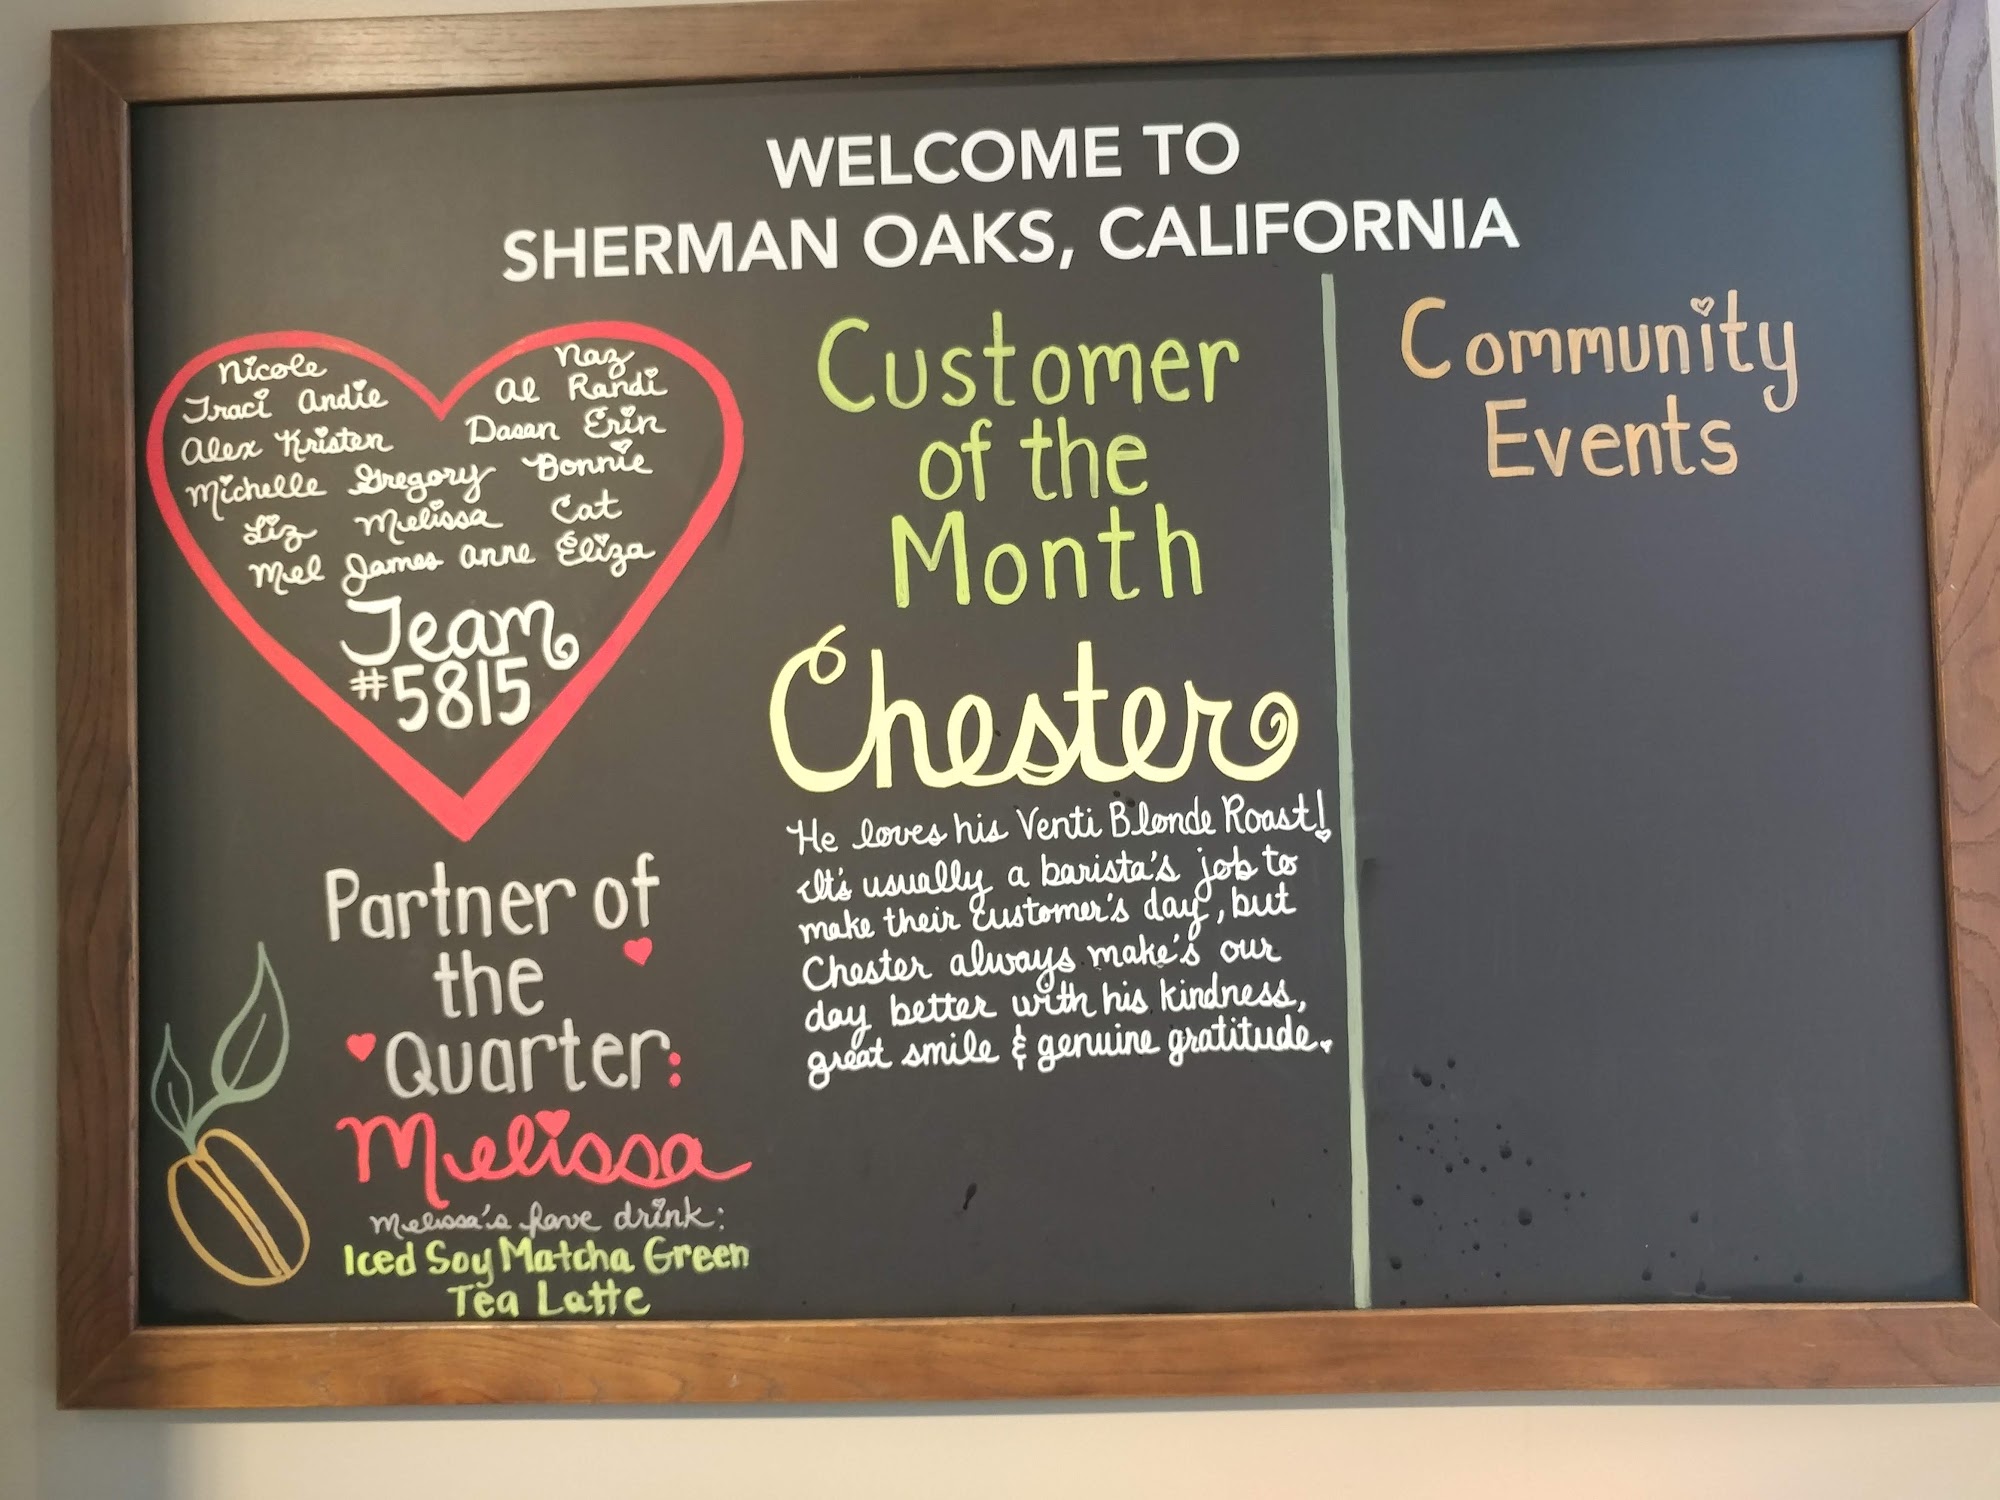 WELCOME TO
SHERMAN OAKS, CALIFORNIA
Nicole
Traci Andie
Alex Kristen
Naz
Al Randi
Dasan Erin
Michelle Gregory Bonnie
Liz Melissa Cat
Mel James Anne Eliza
Team
#5815
Partner of
the
Quarter:
Melissa
Melissa's fave drink:
Iced Soy Matcha Green
Tea Latte
Customer
of the
Month
Chester
He loves his Venti Blonde Roast!
It's usually a barista's job to
make their customer's day, but
Chester always make's our
day better with his kindness,
great smile & genuine gratitude.
Community
Events